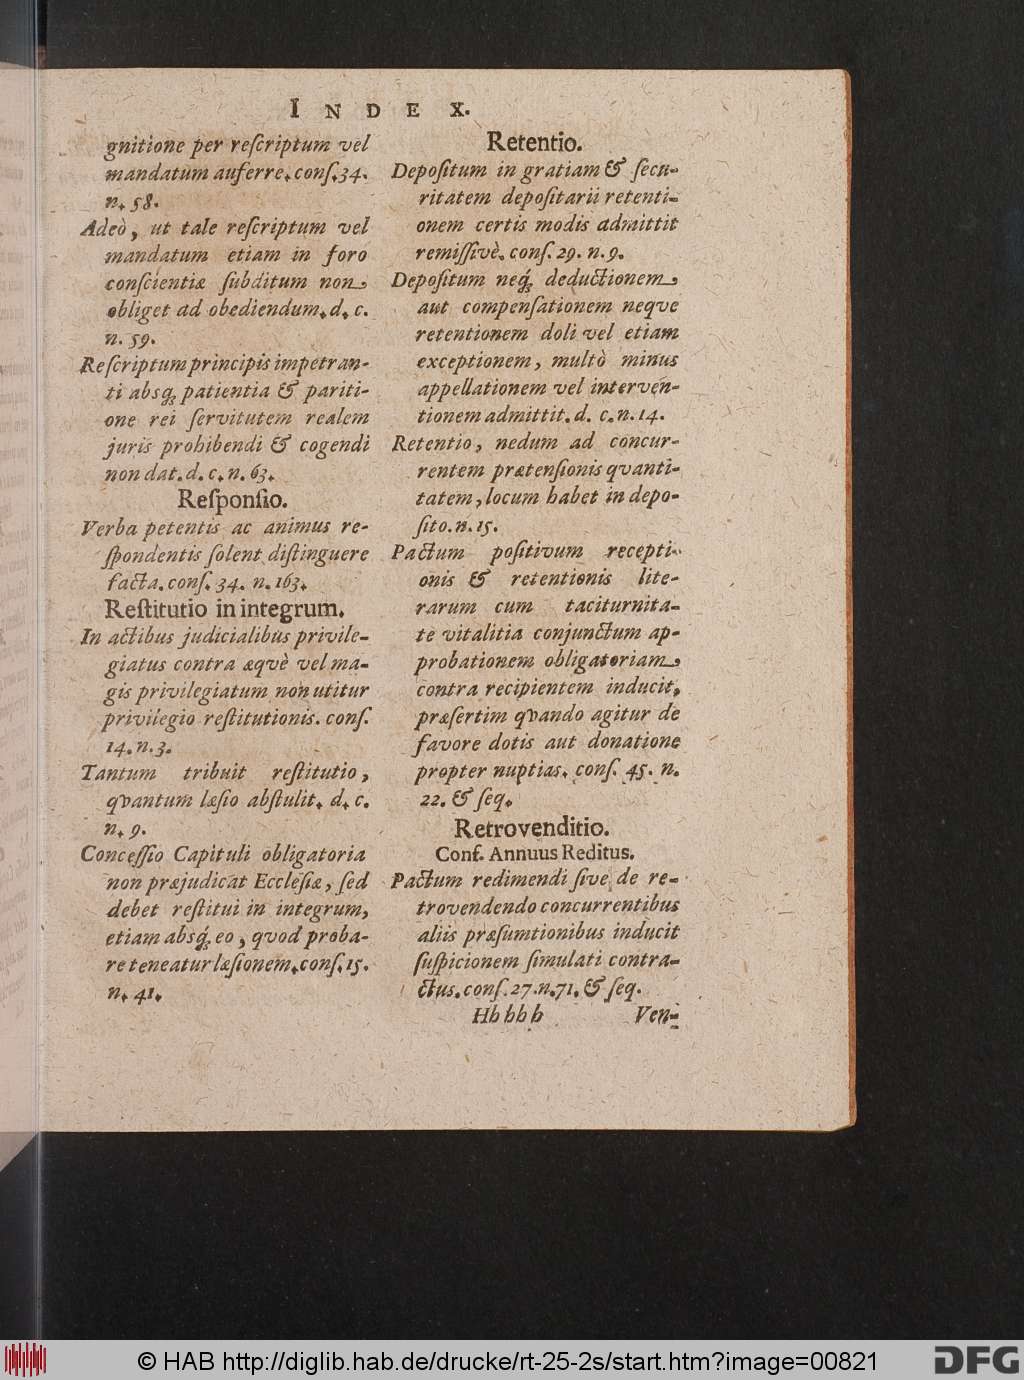 INDEX.
gnitione per reſcriptum vel
mandatum auferre. conſ. 34.
n. 58.
Adeò, ut tale reſcriptum vel
mandatum etiam in foro
conſcientiæ ſubditum non
obliget ad obediendum. d. c.
n. 59.
Reſcriptum principis impetran-
ti absq; patientia & pariti-
one rei ſervitutem realem
juris prohibendi & cogendi
non dat. d. c. n. 63.
Reſponſio.
Verba petentis ac animus re-
ſpondentis ſolent diſtinguere
facta. conſ. 34. n. 163.
Reſtitutio in integrum.
In actibus judicialibus privile-
giatus contra æqvè vel ma-
gis privilegiatum non utitur
privilegio reſtitutionis. conſ.
14. n. 3.
Tantum tribuit reſtitutio,
qvantum læſio abſtulit. d. c.
n. 9.
Conceſſio Capituli obligatoria
non præjudicat Eccleſiæ, ſed
debet reſtitui in integrum,
etiam absq; eo, qvod proba-
re teneatur læſionem. conſ. 15.
n. 41.
Retentio.
Depoſitum in gratiam & ſecu-
ritatem depoſitarii retenti-
onem certis modis admittit
remiſſivè. conſ. 29. n. 9.
Depoſitum neq; deductionem,
aut compenſationem neqve
retentionem doli vel etiam
exceptionem, multò minus
appellationem vel interven-
tionem admittit. d. c. n. 14.
Retentio, nedum ad concur-
rentem prætenſionis qvanti-
tatem, locum habet in depo-
ſito. n. 15.
Pactum poſitivum recepti-
onis & retentionis lite-
rarum cum taciturnita-
te vitalitia conjunctum ap-
probationem obligatoriam,
contra recipientem inducit,
præſertim qvando agitur de
favore dotis aut donatione
propter nuptias. conſ. 45. n.
22. & ſeq.
Retrovenditio.
Conf. Annuus Reditus.
Pactum redimendi ſive de re-
trovendendo concurrentibus
aliis præſumtionibus inducit
ſuſpicionem ſimulati contra-
ctus. conſ. 27. n. 71. & ſeq.
Hhhhh Ven-
© HAB http://diglib.hab.de/drucke/rt-25-2s/start.htm?image=00821
DFG